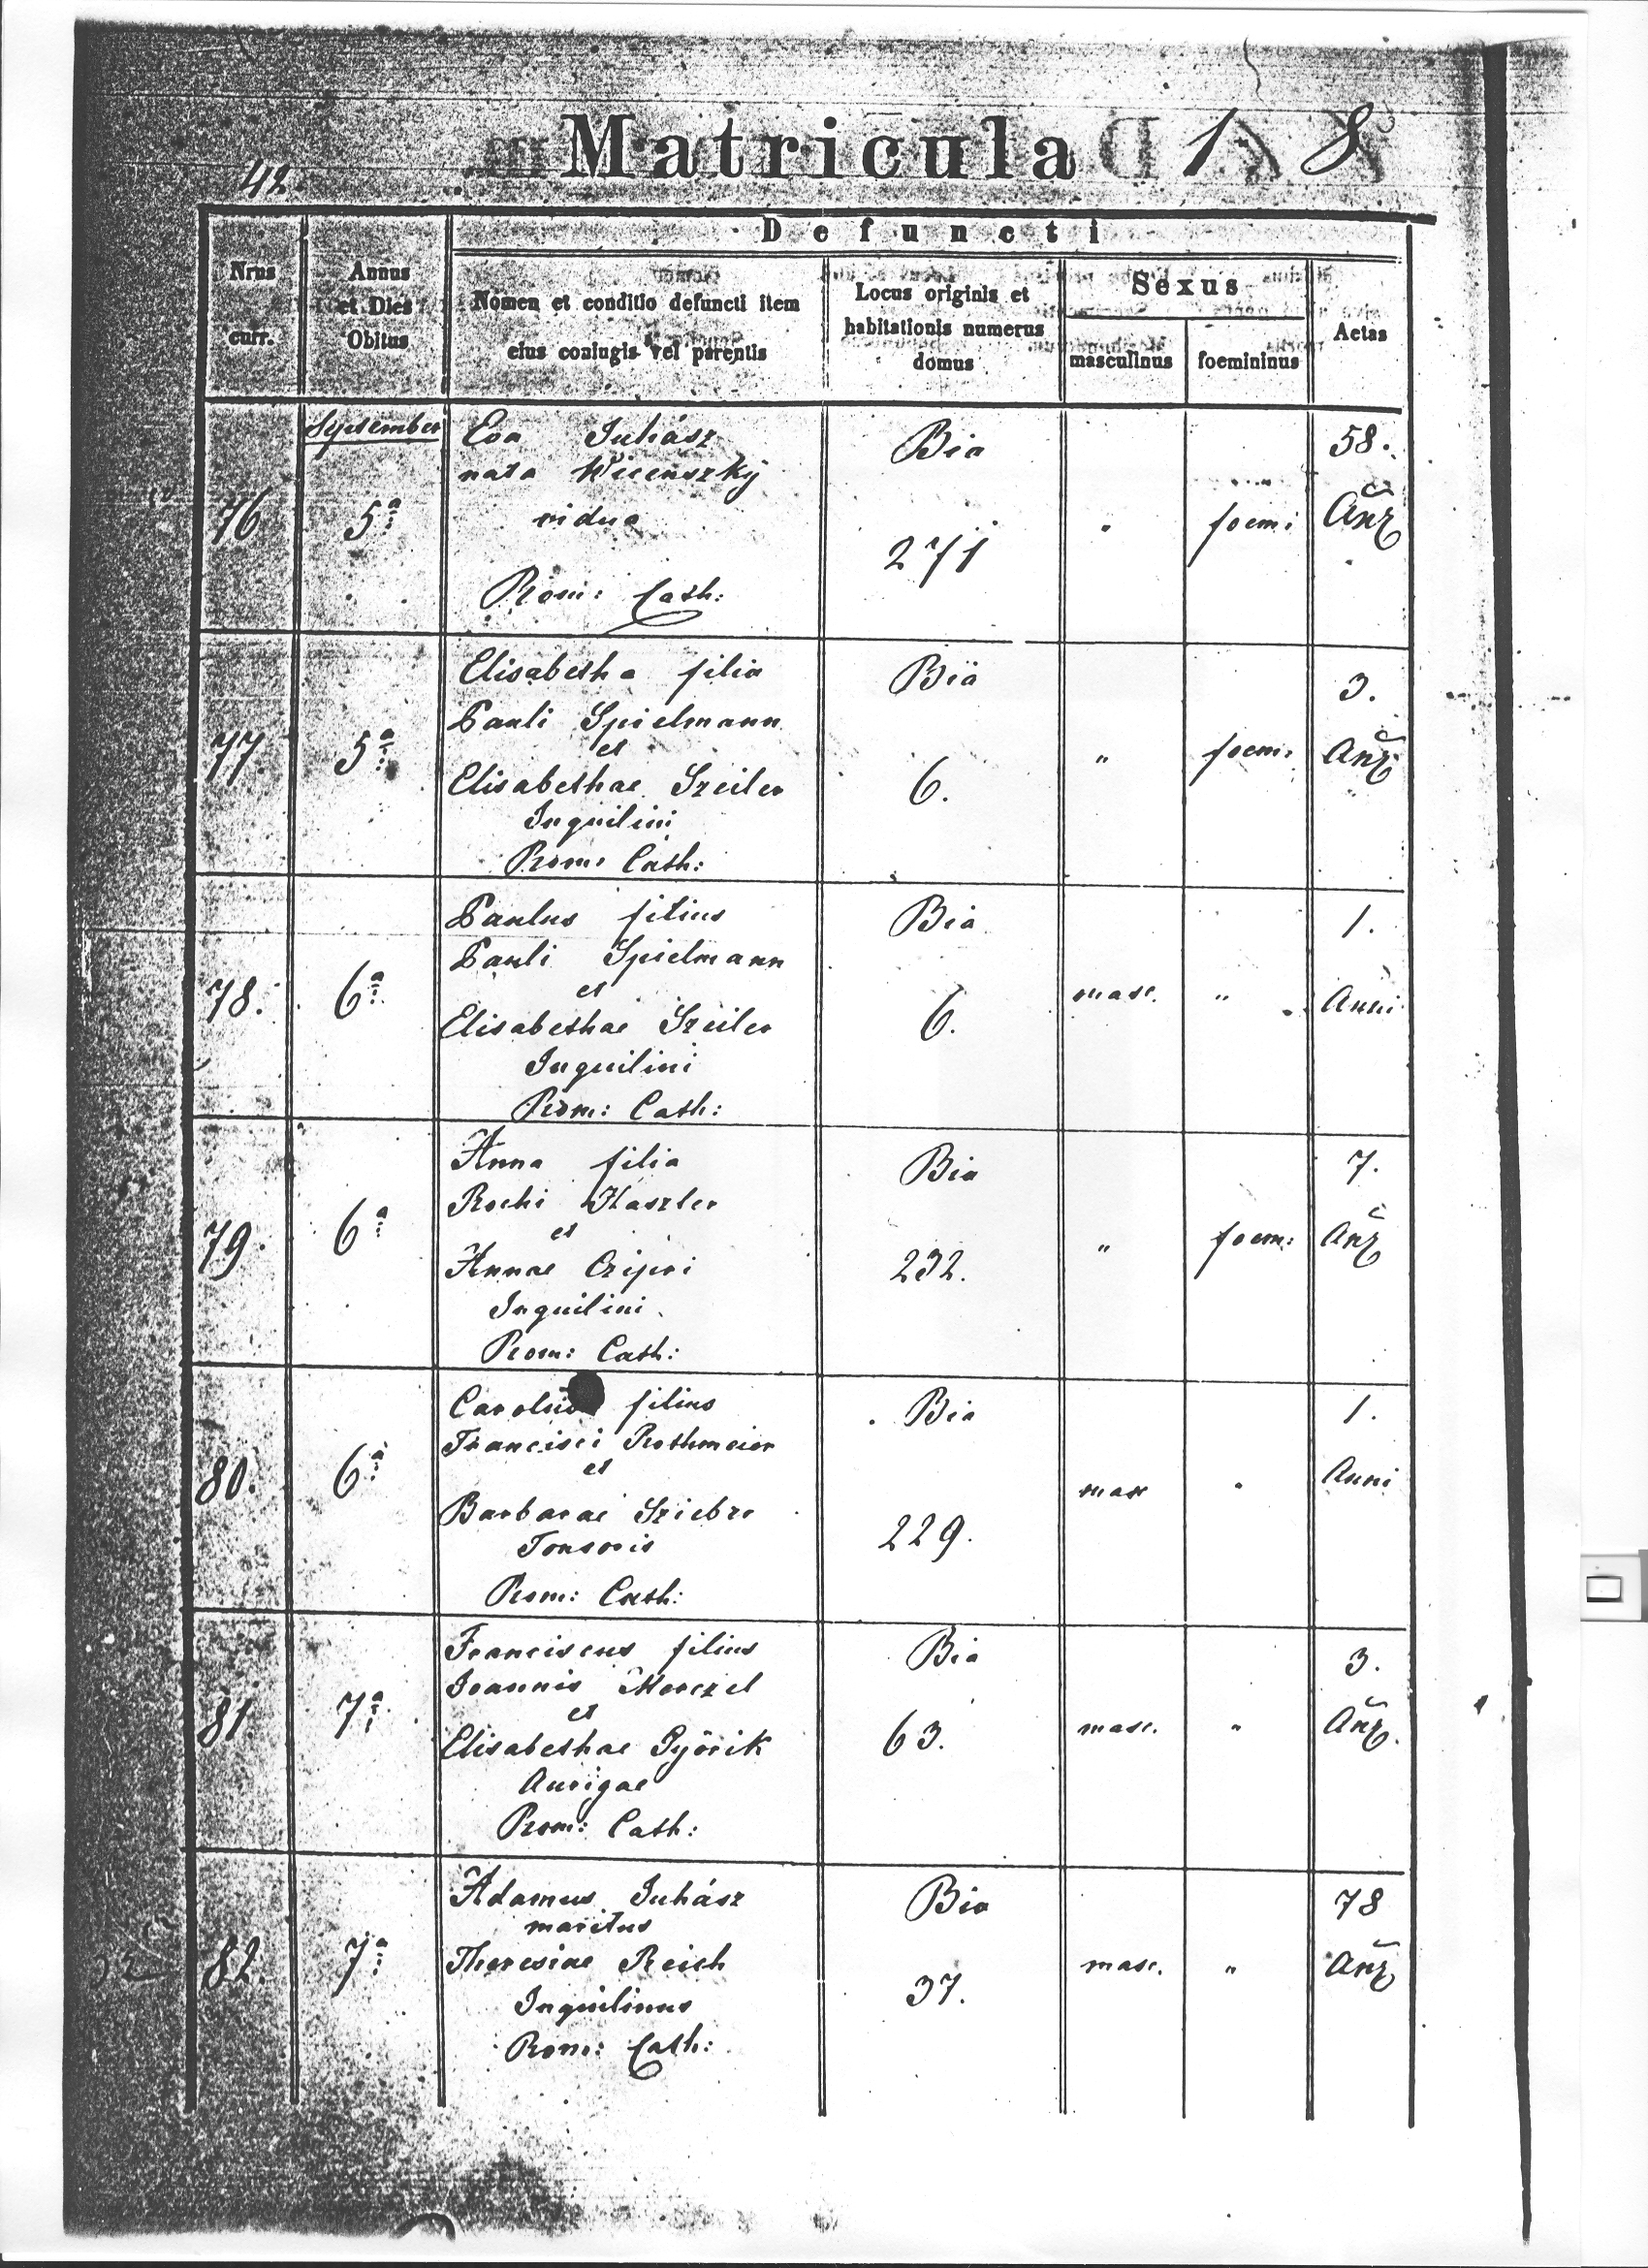 42.
Matricula 1 8
Defuncti
Nrus curr.
Annus et Dies Obitus
Nomen et conditio defuncti item eius coniugis vel parentis
Locus originis et habitationis numerus domus
Sexus
masculinus
foemininus
Aetas
September
Eva Juhász Bia 58.
nata
76 5a vidua " foem: Anr
271
Rom: Cath:
Elisabetha filia Bia 3.
Pauli Spielmann
et
77 5a " foem: Anr
Elisabethae Szeiler 6.
Inquilini
Rom: Cath:
Paulus filius Bia 1.
Pauli Spielmann
et
78. 6a masc. " Anni
Elisabethae Szeiler 6.
Inquilini
Rom: Cath:
Anna filia Bia 7.
Rochi Haszler
et
79. 6a " foem: Anr
Annae Czipri 232.
Inquilini
Rom: Cath:
Carolus filius Bia 1.
Francisci Rothmeier
et
80. 6a masc " Anni
Barbarae 229.
Tonsoris
Rom: Cath:
Franciscus filius Bia 3.
Joannis Morczel
et
81. 7a 63. masc. " Anr.
Elisabethae Györik
Aurigae
Rom: Cath:
Adamus Juhász Bia 78
maritus
82. 7a Theresiae Reich masc. " Anr
37.
Inquilinus
Rom: Cath: